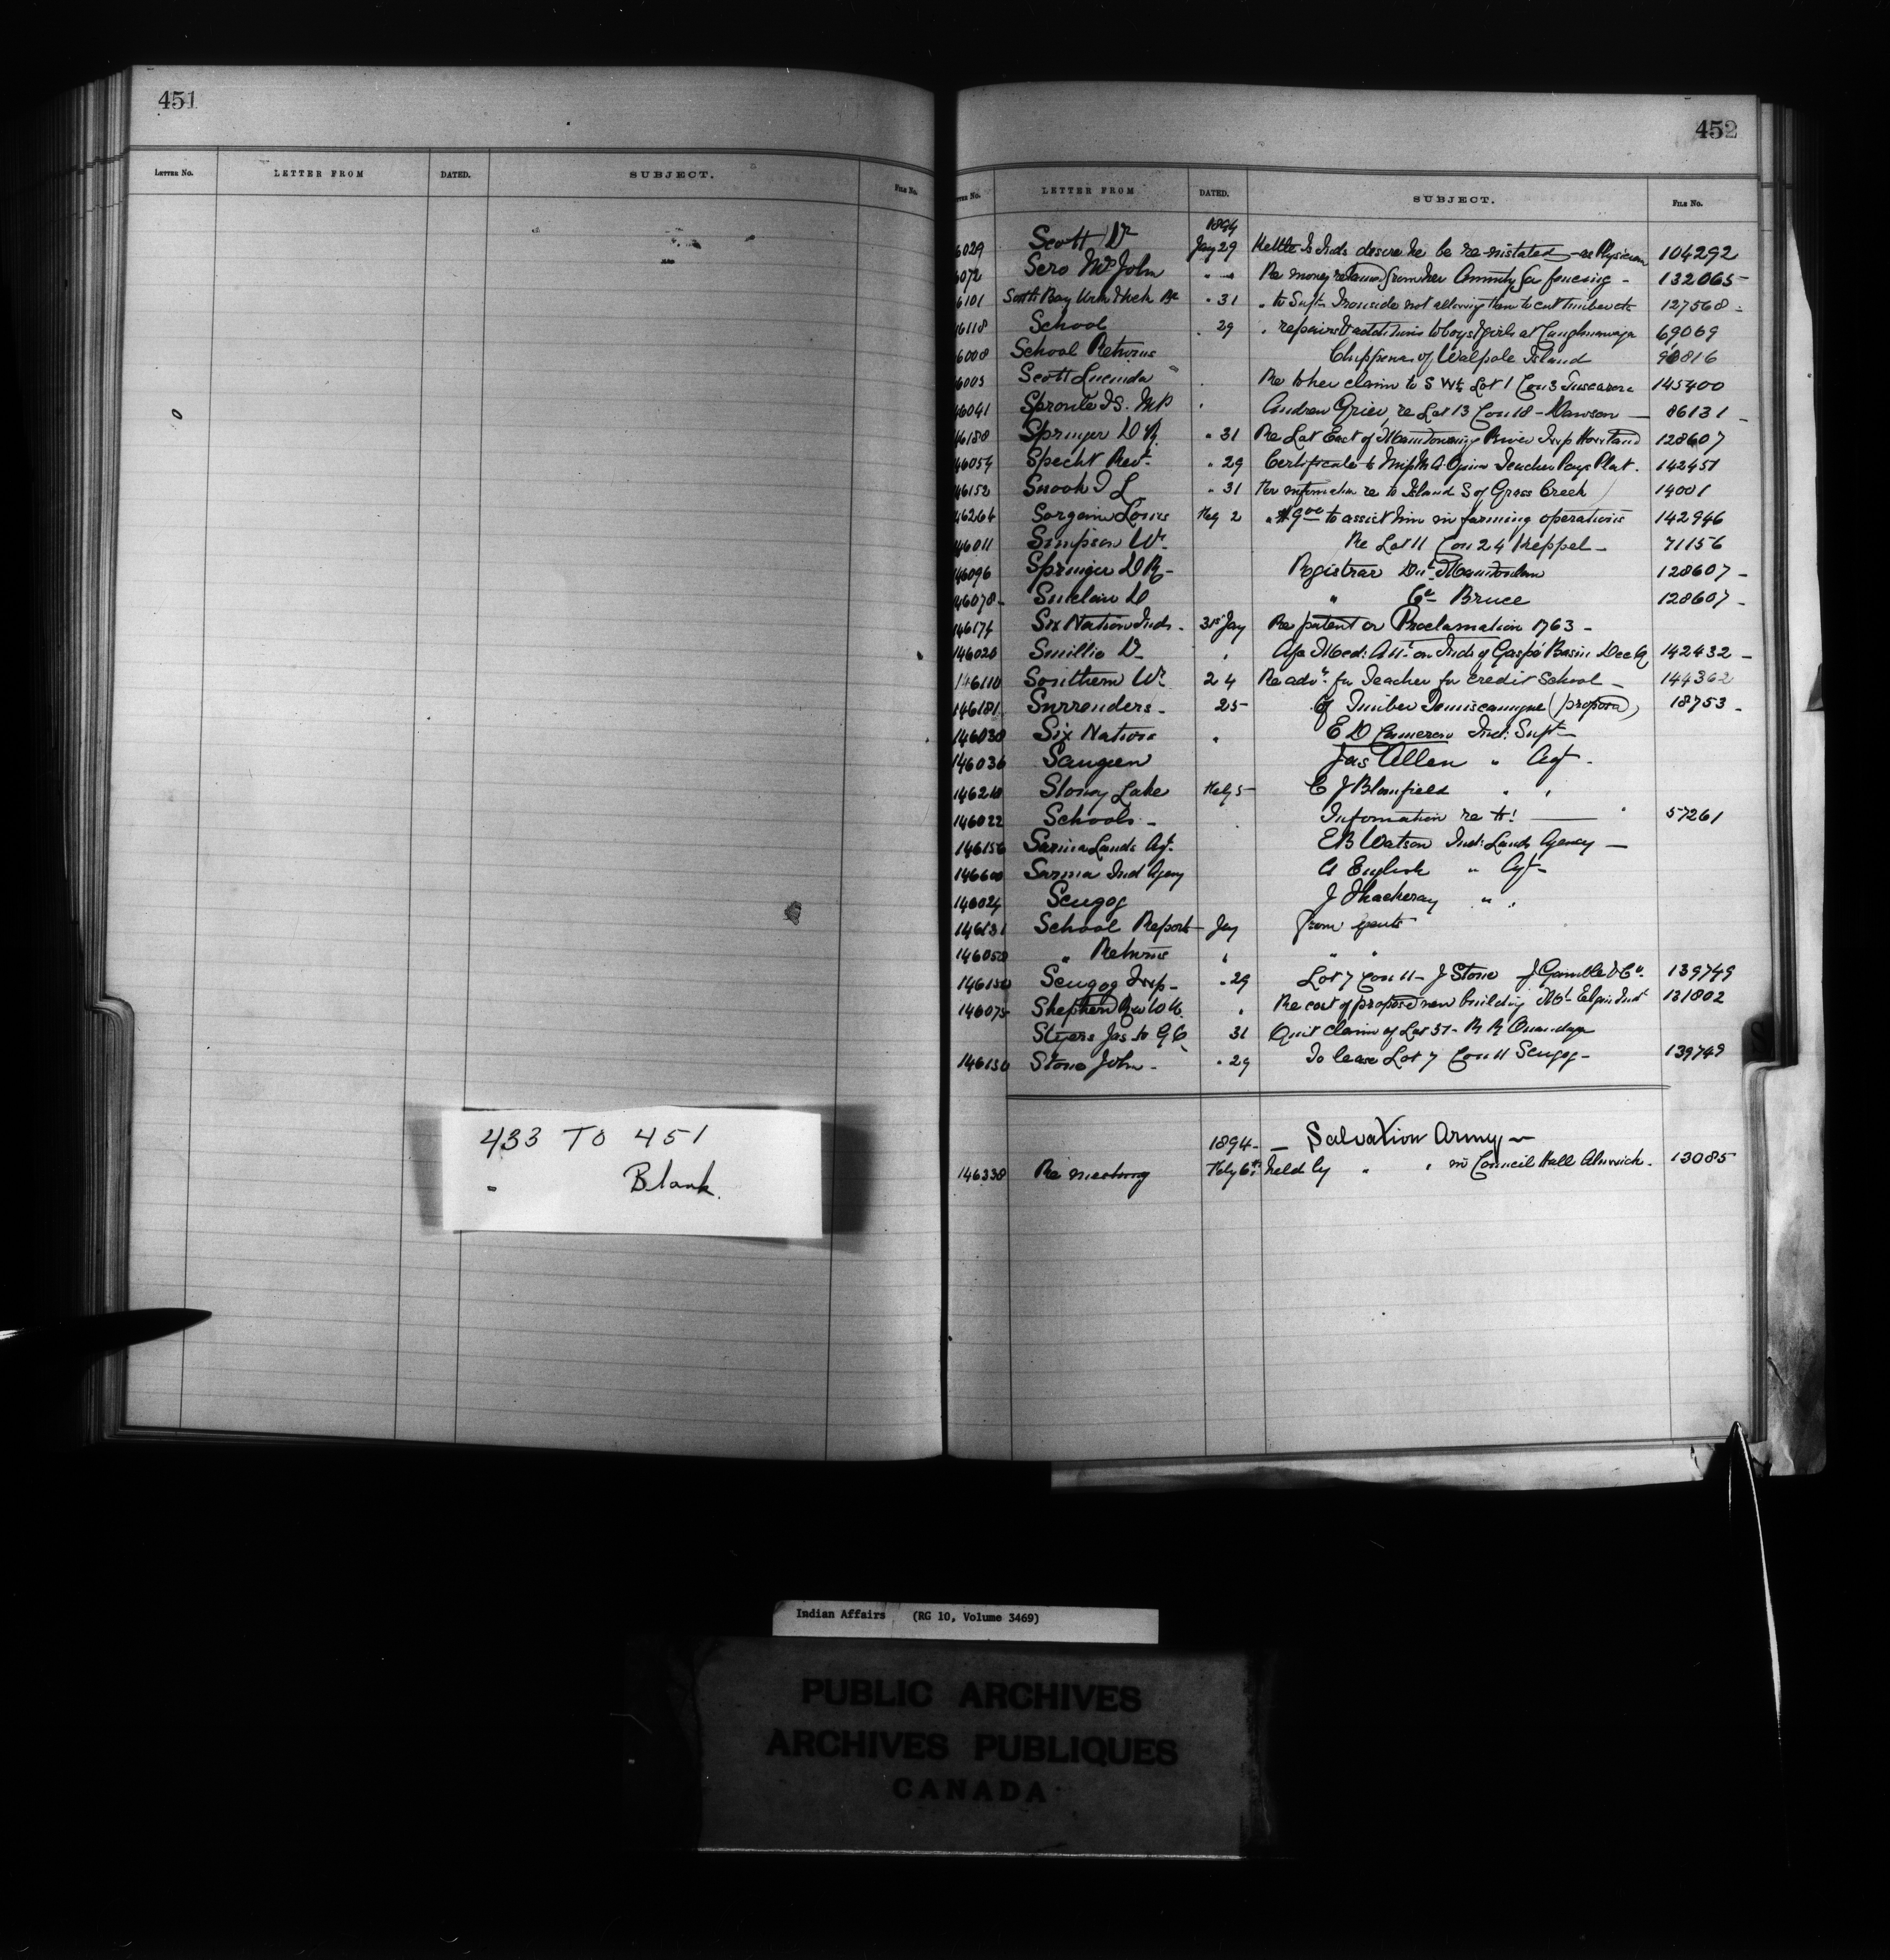 451
LETTER No. LETTER FROM DATED. SUBJECT. FILE No.
433 TO 451
- Blank.
452
LETTER FROM DATED. SUBJECT. FILE No.
1894
6029 Scott Dr Jay 29 Kettle Pt Inds desire he be re-instated as Physician 104292
6072 Sero Mrs John " " Re money retained from her Annuity for fencing - 132065
6101 South Bay " 31 " to Supt Ironside not allowing them to cut timber etc 127568
6118 School " 29 " repairs & additions to boys & girls at Caughnawaga 69069
6008 School Returns Chippewas of Walpole Island 90816
6005 Scott Lucinda Re to her claim to S W¼ Lot 1 Con 3 Tuscarora 145400
46041 Sproule T S. M P Andrew Grier re Lot 13 Con 18 - Dawson - 86131
46188 Springer D R. " 31 Re Lot East of Manitowaning River Twp Howland 128607
46054 Specht Revd. " 29 Certificate to Teacher Pays Plat. 142451
46152 Snook T L " 31 For information re to Island S of Grass Creek 14001
46264 Sorgain Louis Feby 2 " $9.00 to assist him in farming operations 142946
46011 Simpson Wm. Re Lot 11 Con 24 Keppel - 71156
46096 Springer D R - Registrar Dist Manitoulin 128607 -
46078 - Sinclair D " Co Bruce 128607 -
146174 Six Nation Inds - 31st Jay Re patent or Proclamation 1763 -
146020 Smillie Dr " Afc Med: Att: on Inds of Gaspé Basin Dec Q 142432 -
146110 Southern Wm 24 Re advt. for Teacher for Credit School - 144362
146181 Surrenders - 25 - Of Timber Temiscamingue (proposed) 18753 -
146030 Six Nations " E D Cameron Ind: Supt -
146036 Saugeen Jas Allen " Agt -
146210 Stoney Lake Feby 5 - C J Blomfield " "
146022 Schools - Information re to: 57261
146156 Sarnia Lands Agt. E B Watson Ind: Lands Agency -
146600 Sarnia Ind Agency A English " Agt -
146024 Scugog J Thackeray " "
146131 School Reports - Jay From Agents
146050 " Returns " " "
146130 Scugog Twp - " 29 Lot 7 Con 11 - J Stone J Gamble & Co. 139749
146075 Shepherd Rev W W. " Re cost of proposed new building Mt Elgin Inst 131802
Styers Jas to G C. 31 Quit Claim of Lot 37 - R R Onondaga
146130 Stone John - " 29 To lease Lot 7 Con 11 Scugog - 139749
1894 - - Salvation Army -
146338 Re meeting Feby 6th held by " " in Council Hall Alnwick. 13085
Indian Affairs (RG 10, Volume 3469)
PUBLIC ARCHIVES
ARCHIVES PUBLIQUES
CANADA